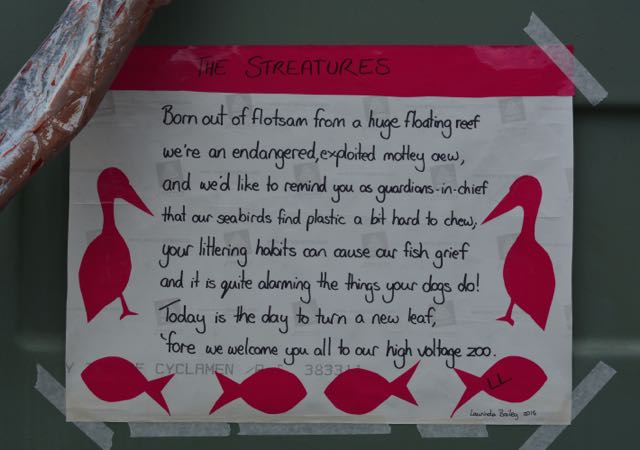 THE STREATURES
Born out of flotsam from a huge floating reef
we're an endangered, exploited motley crew,
and we'd like to remind you as guardians-in-chief
that our seabirds find plastic a bit hard to chew,
your littering habits can cause our fish grief
and it is quite alarming the things your dogs do!
Today is the day to turn a new leaf,
'fore we welcome you all to our high voltage zoo.
CYCLAMEN
LL
Laurinda Bailey 2016